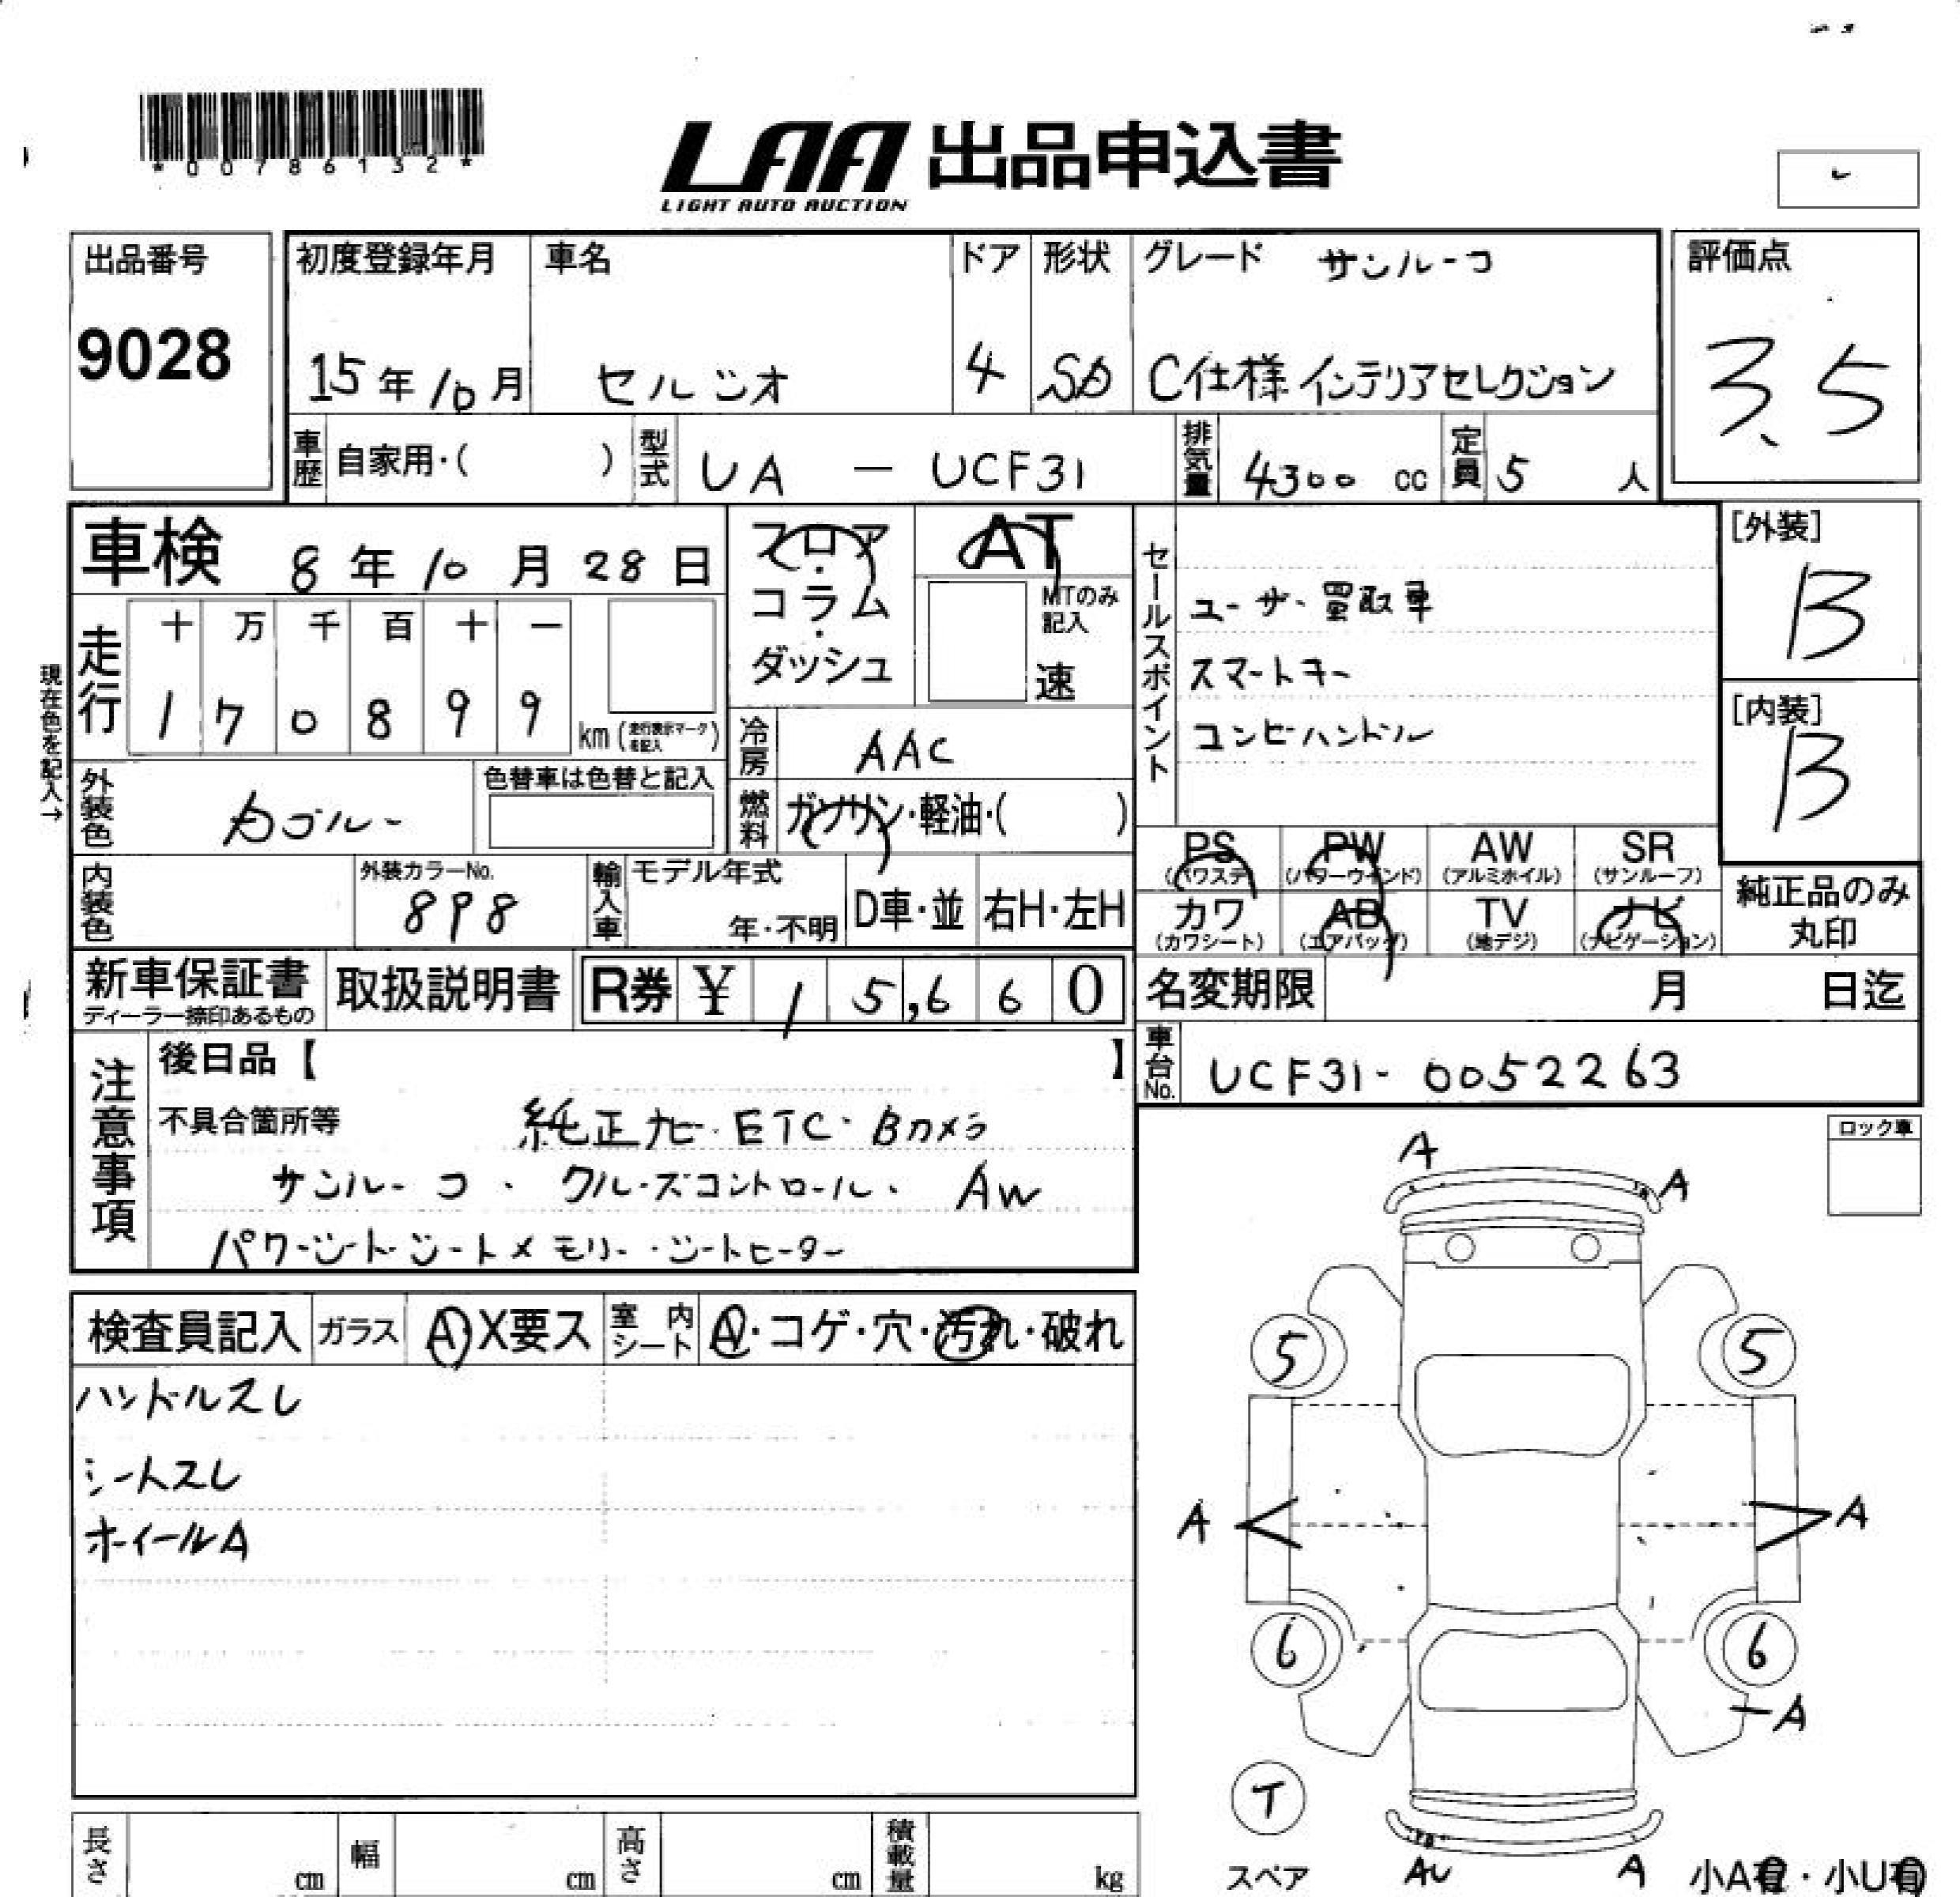 *00786132*
LAA 出品申込書
LIGHT AUTO AUCTION
出品番号
9028
初度登録年月
15年10月
車名
セルシオ
ドア
4
形状
SD
グレード サンルーフ
C仕様 インテリアセレクション
評価点
3.5
車歴 自家用・( )
型式 UA - UCF31
排気量 4300 cc
定員 5 人
車検 8年10月28日
フロア・コラム・ダッシュ
AT
MTのみ記入
速
セールスポイント
ユーザー買取車
スマートキー
コンビハンドル
[外装]
B
[内装]
B
現在色を記入→
走行
十 万 千 百 十 一
1 7 0 8 9 9 km (走行表示マークを記入)
冷房 AAC
燃料 ガソリン・軽油・( )
外装色
色替車は色替と記入
内装色
外装カラーNo.
898
輸入車 モデル年式
年・不明
D車・並 右H・左H
PS (パワステ)
PW (パワーウインド)
AW (アルミホイル)
SR (サンルーフ)
カワ (カワシート)
AB (エアバッグ)
TV (地デジ)
ナビ (ナビゲーション)
純正品のみ丸印
新車保証書
ディーラー捺印あるもの
取扱説明書
R券 ¥ 15,660
名変期限 月 日迄
車台No. UCF31-0052263
注意事項
後日品【 】
不具合箇所等 純正ナビ・ETC・Bカメラ
サンルーフ・クルーズコントロール・AW
パワーシート・シートメモリー・シートヒーター
ロック車
検査員記入 ガラス A X要ス 室内シート A・コゲ・穴・汚れ・破れ
ハンドルスレ
シートスレ
ホイールA
A
A
5
5
A
A
6
6
A
T
スペア
AU
A
小A有・小U有
長さ cm
幅 cm
高さ cm
積載量 kg